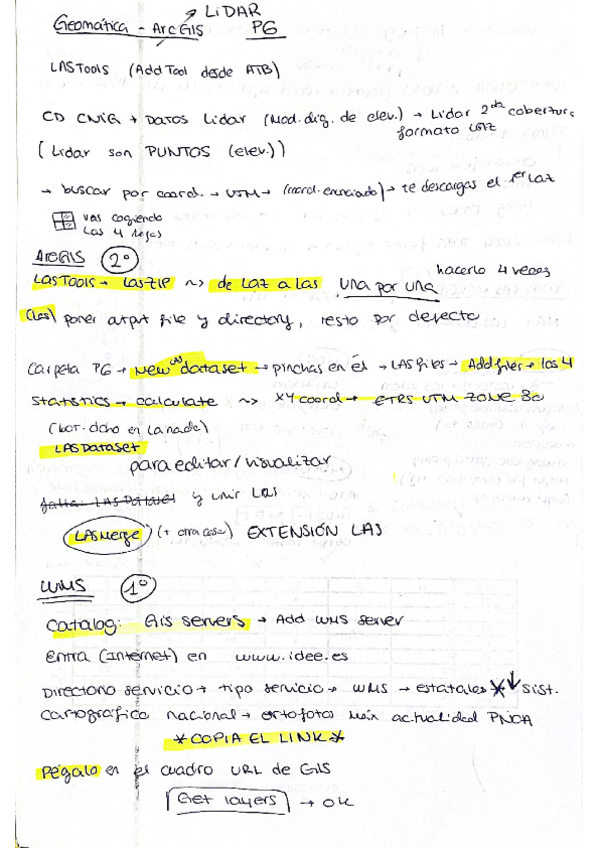 → LiDAR
Geomática - ArcGIS PG
LASTOOLS (Add Tool desde ATB)
CD CNIG + DATOS Lidar (Mod. dig. de elev.) → Lidar 2da cobertura
formato LAZ
(Lidar son PUNTOS (elev.))
→ buscar por coord. → UTM → (coord. enunciado) → te descargas el 1er Laz
vas cogiendo
las 4 hojas
ArcGIS 2º
hacerlo 4 veces
LASTOOLS → LASZIP ~> de Laz a las una por una
(las) poner output file y directory, resto por defecto
Carpeta PG → New LAS dataset → pinchas en él → LAS files → Add files → las 4
Statistics → calculate ~> XY coord → ETRS UTM ZONE 30
LAS Dataset
para editar/visualizar
falta: LAS Dataset y unir LAS
LASMerge (+ otra cosa) EXTENSIÓN LAS
WMS 1º
Catalog: Gis servers → Add WMS server
Entra (Internet) en www.idee.es
Directorio servicio → tipo servicio → WMS → estatales * ↓ sist.
cartográfico nacional → ortofotos máx actualidad PNOA
* COPIA EL LINK *
Pégalo en el cuadro URL de GIS
Get layers → OK